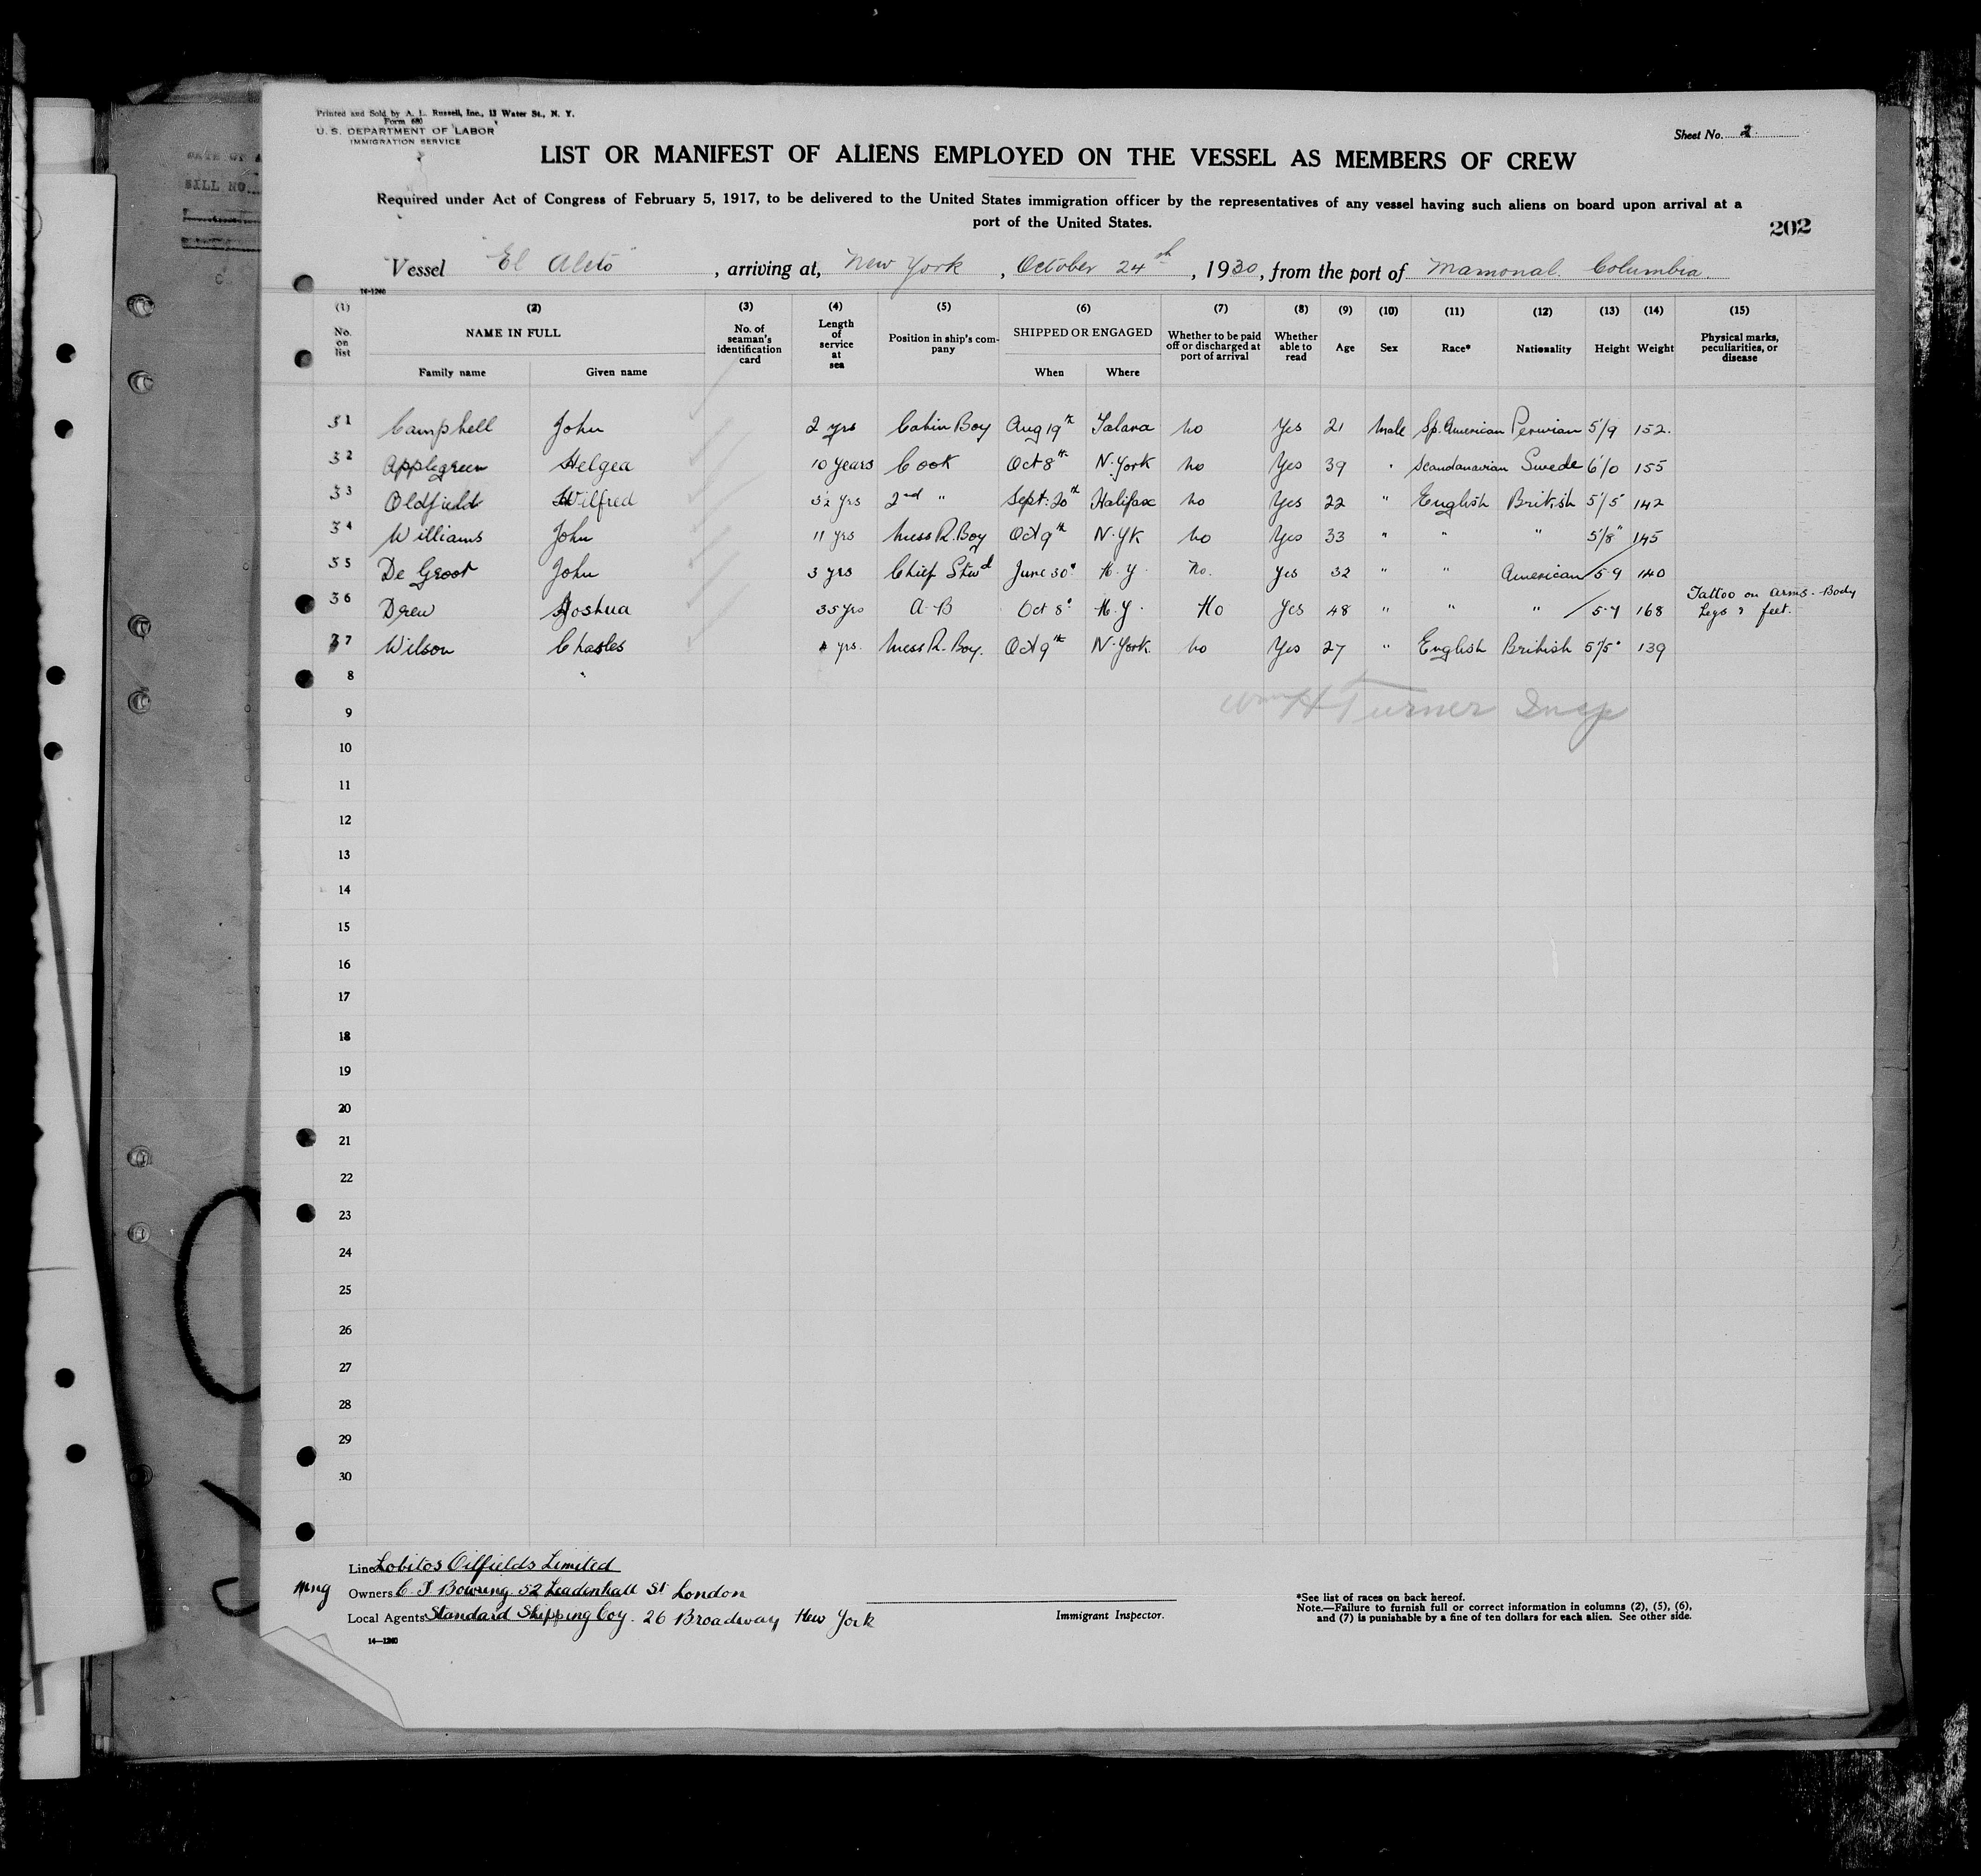 Printed and Sold by A. L. Russell, Inc., 13 Water St., N. Y.
Form 680
U. S. DEPARTMENT OF LABOR
IMMIGRATION SERVICE
Sheet No. 2
LIST OR MANIFEST OF ALIENS EMPLOYED ON THE VESSEL AS MEMBERS OF CREW
Required under Act of Congress of February 5, 1917, to be delivered to the United States immigration officer by the representatives of any vessel having such aliens on board upon arrival at a
port of the United States.
202
Vessel "El Aleto", arriving at, New York, October 24th, 1930, from the port of Mamonal. Columbia.
14-1240
(1) (2) (3) (4) (5) (6) (7) (8) (9) (10) (11) (12) (13) (14) (15)
No. on list NAME IN FULL No. of seaman's identification card Length of service at sea Position in ship's company SHIPPED OR ENGAGED Whether to be paid off or discharged at port of arrival Whether able to read Age Sex Race* Nationality Height Weight Physical marks, peculiarities, or disease
Family name Given name When Where
31 Campbell John 2 yrs Cabin Boy Aug 19th Talara No Yes 21 Male Sp. American Peruvian 5/9 152.
32 Applegreen Helgea 10 years Cook Oct 8th N. York No Yes 39 " Scandanavian Swede 6/0 155
33 Oldfield Wilfred 3½ yrs 2nd " Sept. 20th Halifax No Yes 22 " English British 5/5 142
34 Williams John 11 yrs Mess R. Boy Oct 9th N. Yk No Yes 33 " " " 5/8" 145
35 De Groot John 3 yrs Chief Stwd June 30" N. Y. No. Yes 32 " " American 5-9 140
36 Drew Joshua 35 yrs A-B Oct 8" N. Y. No Yes 48 " " " 5-7 168 Tattoo on arms - Body
Legs & feet.
37 Wilson Charles yrs. Mess R. Boy. Oct 9th N. York. No Yes 27 " English British 5/5" 139
8
Wm H Turner Insp
9
10
11
12
13
14
15
16
17
18
19
20
21
22
23
24
25
26
27
28
29
30
Line Lobitos Oilfields Limited
Mng Owners C. T. Bowring. 52 Leadenhall St London
Local Agents Standard Shipping Coy. 26 Broadway New York
14-1240
Immigrant Inspector.
*See list of races on back hereof.
Note.—Failure to furnish full or correct information in columns (2), (5), (6),
and (7) is punishable by a fine of ten dollars for each alien. See other side.